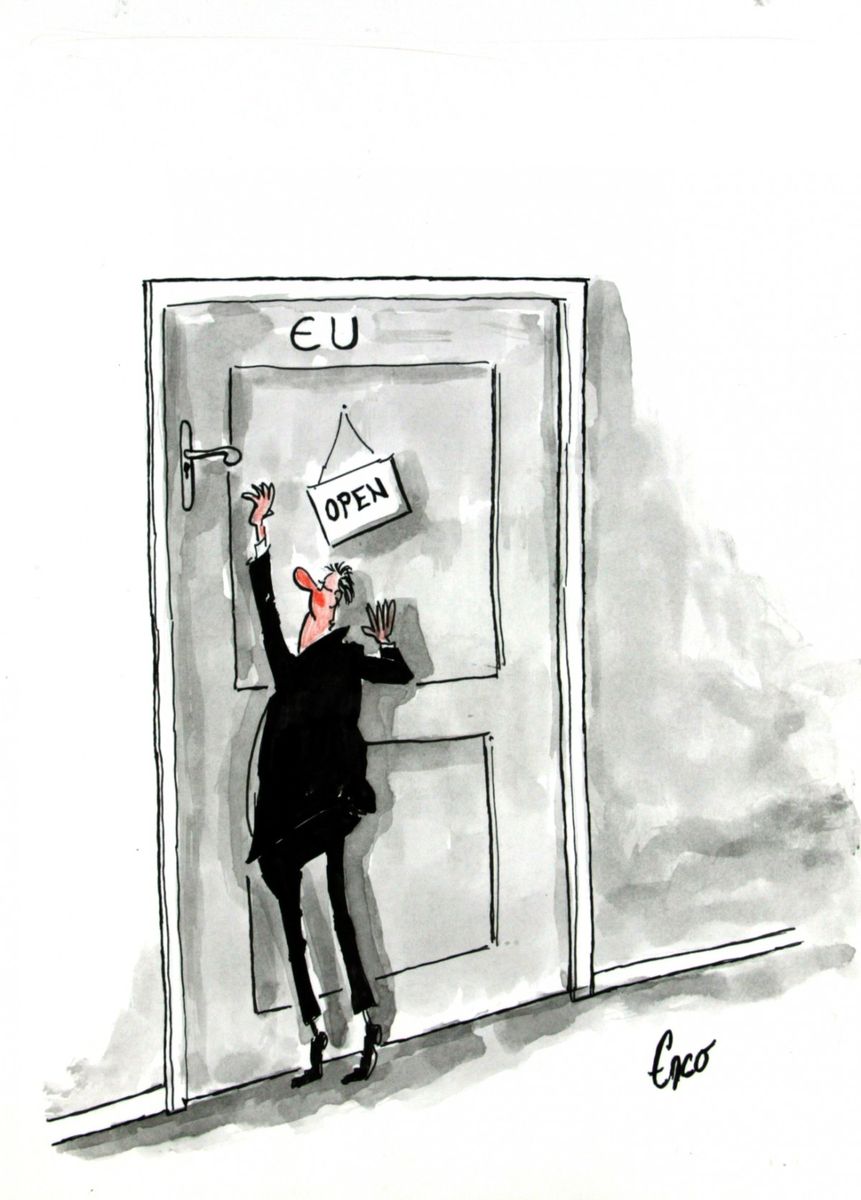 EU
OPEN
Erco